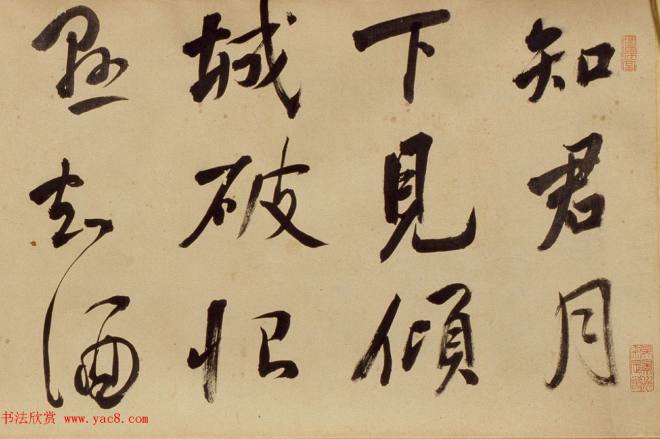 知君月
下見傾
城破恨
懸知酒
书法欣赏 www.yac8.com